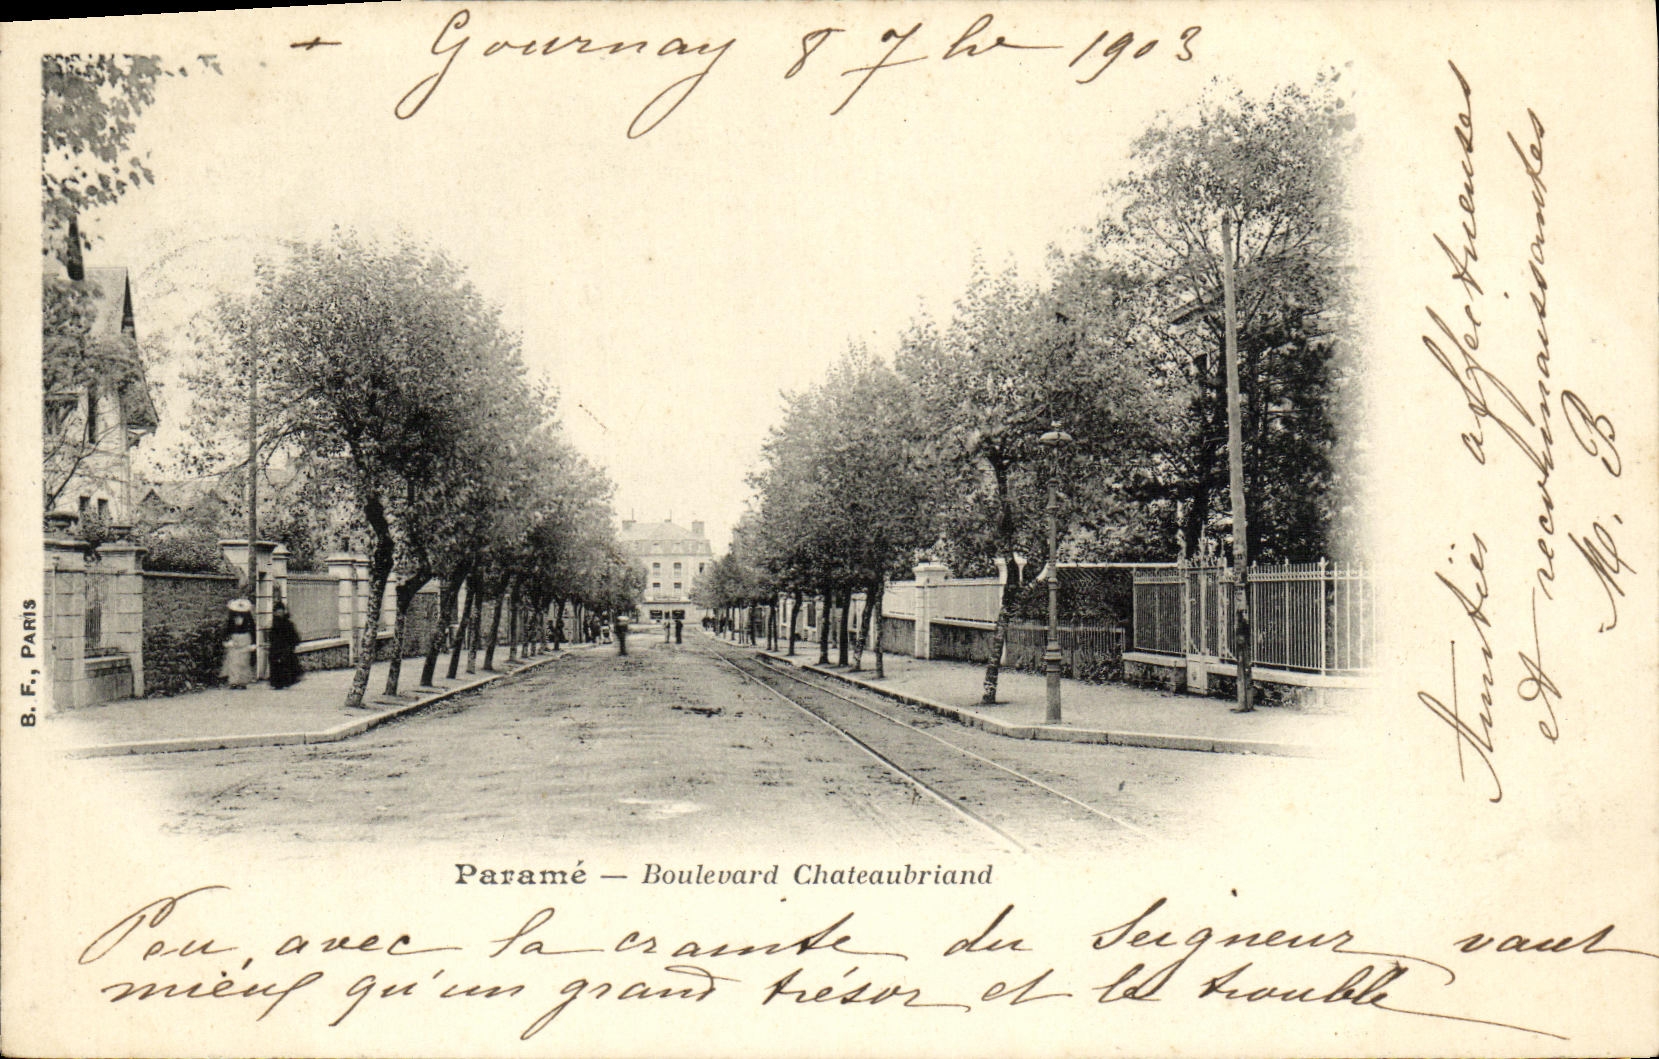 + Gournay 8 7bre 1903
Amitiés affectueuses
et reconnaissantes
M. B
B. F., PARIS
Paramé — Boulevard Chateaubriand
Peu, avec la crainte du Seigneur vaut
mieux qu'un grand trésor et le trouble